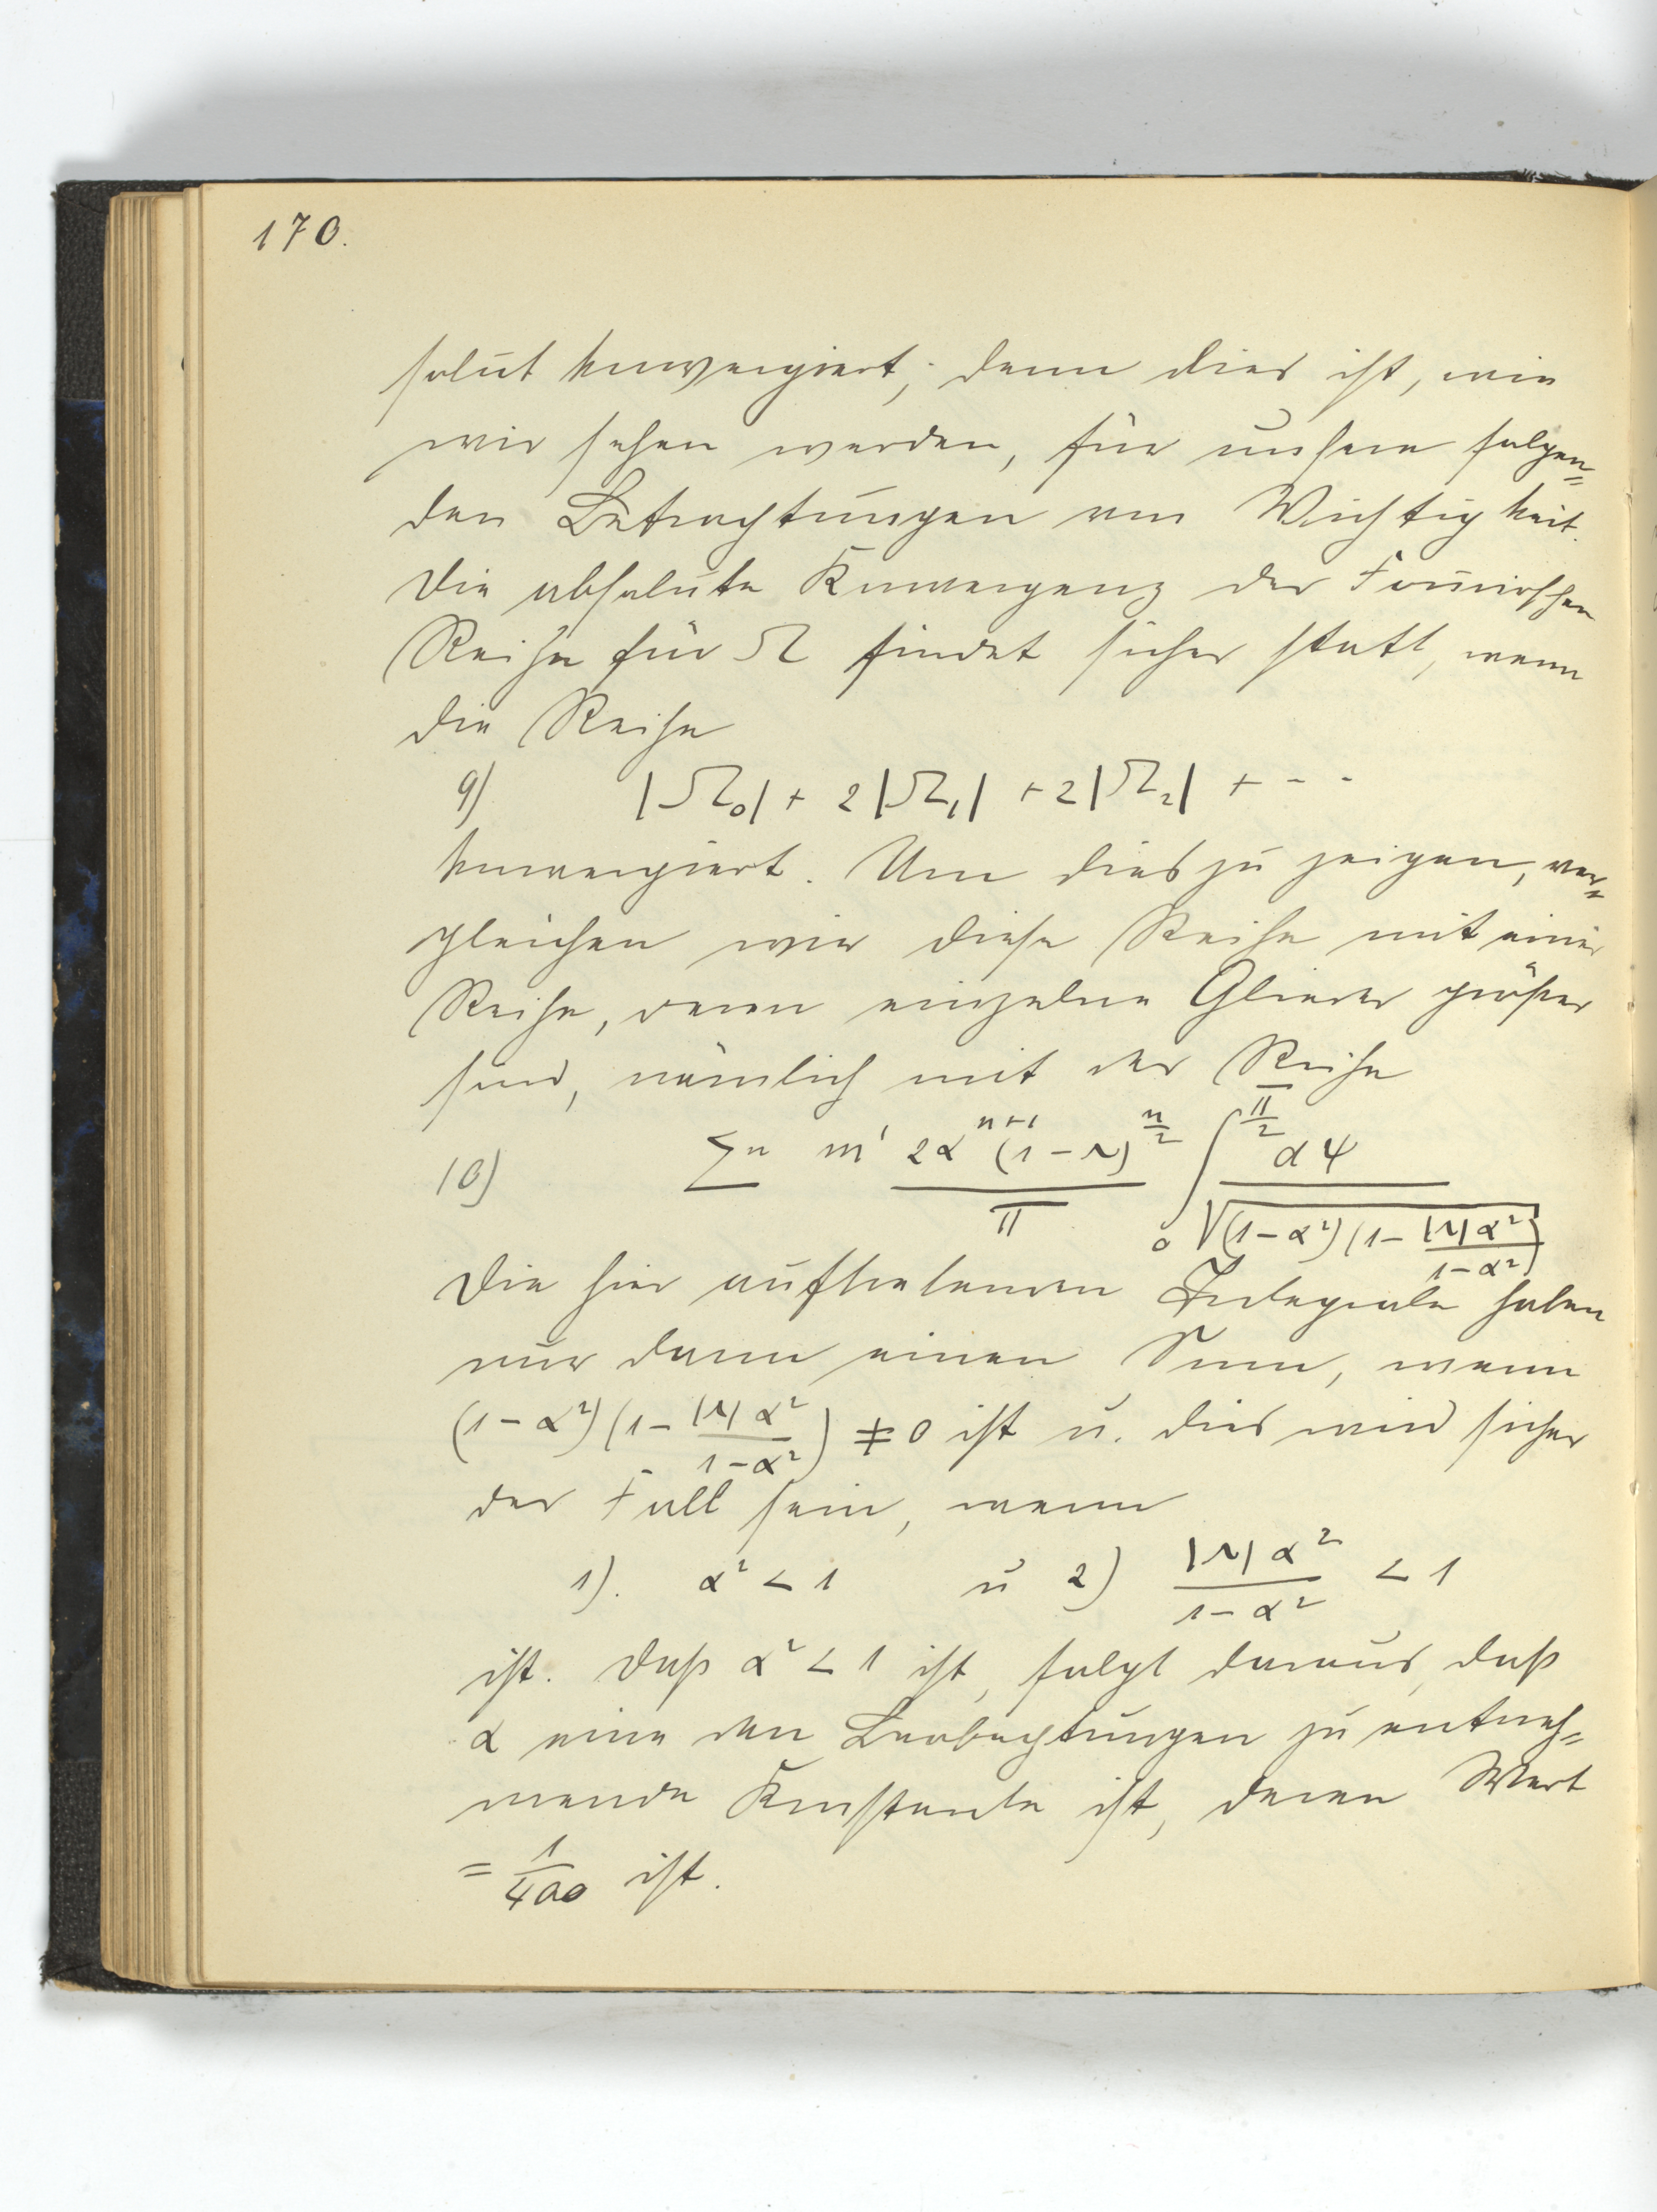 170.
solut konvergiert; denn dies ist, wie
wir sehen werden, für unsere folgen=
den Betrachtungen von Wichtigkeit.
Die absolute Konvergenz der Fourierschen
Reihe für Ω findet sicher statt, wenn
die Reihe
9) |Ω₀| + 2|Ω₁| + 2|Ω₂| + - - -
konvergiert. Um dies zu zeigen, ver=
gleichen wir diese Reihe mit einer
Reihe, deren einzelne Glieder größer
sind, nämlich mit der Reihe
10) Σⁿ m' 2α^{n+1}(1-ν)^{n/2} / π ∫₀^{π/2} dψ / √((1-α²)(1 - |ν|α²/(1-α²)))
Die hier auftretenden Integrale haben
nur dann einen Sinn, wenn
(1-α²)(1 - |ν|α²/(1-α²)) ≠ 0 ist u. dies wird sicher
der Fall sein, wenn
1). α² < 1 u 2) |ν|α²/(1-α²) < 1
ist. Daß α² < 1 ist, folgt daraus, daß
α eine den Beobachtungen zu entneh=
mende Konstante ist, deren Wert
= 1/400 ist.